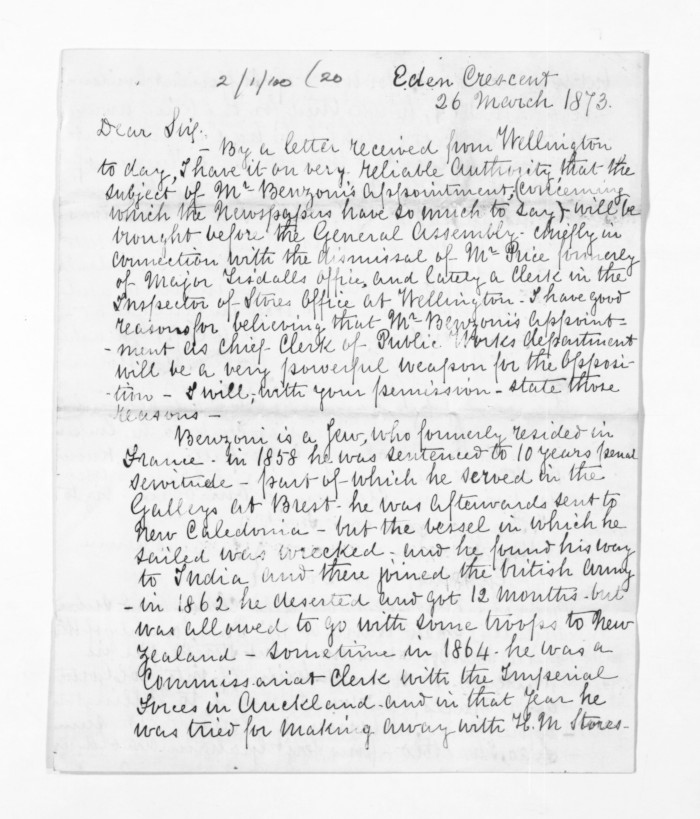 2/1/00 (20 Eden Crescent
26 March 1873.
Dear Sir,
- By a letter received from Wellington
to day, I have it on very reliable Authority, that the
subject of Mr Benzoni's appointment, (concerning
which the Newspapers have so much to say) - will be
brought before the General Assembly - chiefly in
connection with the dismissal of Mr Price formerly
of Major Tisdalls office, and lately a Clerk in the
Inspector of Stores Office at Wellington - I have good
reasons for believing that Mr Benzoni's appoint=
-ment as Chief Clerk of Public Works department
will be a very powerful weapon for the Opposi-
-tion - I will, with your permission - state those
reasons -
Benzoni is a Jew, who formerly resided in
France - in 1858 he was sentenced to 10 years penal
servitude - part of which he served in the
Galleys at Brest - he was afterwards sent to
New Caledonia - but the vessel in which he
sailed was wrecked - and he found his way
to India and there joined the british Army
- in 1862 he deserted and got 12 months - but
was allowed to go with some troops to New
Zealand - sometime in 1864 - he was a
Commissariat Clerk with the Imperial
Forces in Auckland - and in that Year he
was tried for making away with H.M. Stores -